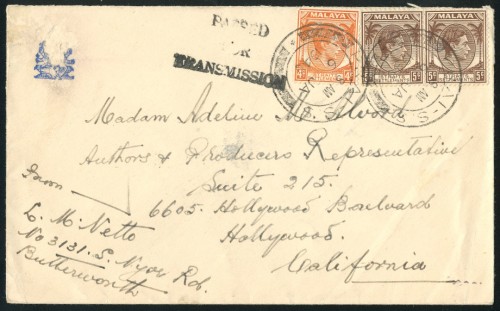 PASSED
FOR
TRANSMISSION
MALAYA
MALAYA
MALAYA
4c 4c
5c 5c
5c 5c
Madam Adeline M. Alvord
Authors & Producers Representative
Suite 215.
6605. Hollywood Boulvard
Hollywood.
California
From
L. M. Netto
No 3131. S. Nyor Rd.
Butterworth